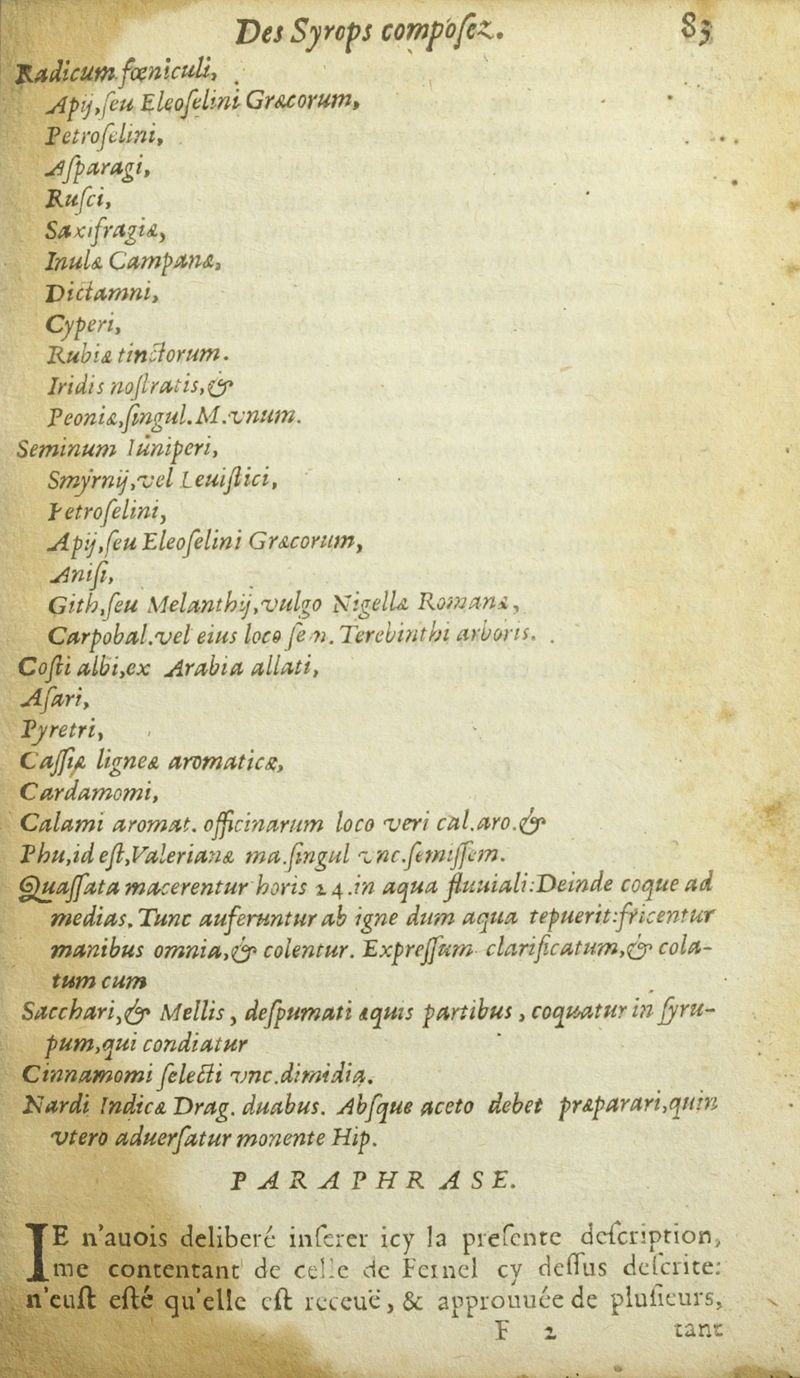 Des Syrops compoſez. 83
Radicum fœniculi,
Apij, ſeu Eleoſelini Græcorum,
Petroſelini,
Aſparagi,
Ruſci,
Saxifragiæ,
Inulæ Campanæ,
Dictamni,
Cyperi,
Rubiæ tinctorum.
Iridis noſtratis, &
Peoniæ, ſingul. M. vnum.
Seminum Iuniperi,
Smyrnij, vel Leuiſtici,
Petroſelini,
Apij, ſeu Eleoſelini Græcorum,
Aniſi,
Gith, ſeu Melanthij, vulgo Nigellæ Romanæ,
Carpobal. vel eius loco ſem. Terebinthi arboris.
Coſti albi, ex Arabia allati,
Aſari,
Pyretri,
Caſſiæ ligneæ aromaticæ,
Cardamomi,
Calami aromat. officinarum loco veri cal. aro. &
Phu, id eſt, Valerianæ ma. ſingul vnc. ſemiſſem.
Quaſſata macerentur horis 24. in aqua fluuiali: Deinde coque ad
medias. Tunc auferuntur ab igne dum aqua tepuerit: fricentur
manibus omnia, & colentur. Expreſſum clarificatum, & cola-
tum cum
Sacchari, & Mellis, deſpumati æquis partibus, coquatur in ſyru-
pum, qui condiatur
Cinnamomi ſelecti vnc. dimidia.
Nardi Indicæ Drag. duabus. Abſque aceto debet præparari, quin
vtero aduerſatur monente Hip.
PARAPHRASE.
IE n'auois deliberé inſerer icy la preſente deſcription,
me contentant de celle de Fernel cy deſſus deſcrite:
n'euſt eſté qu'elle eſt receuë, & approuuée de pluſieurs,
F 2 tant